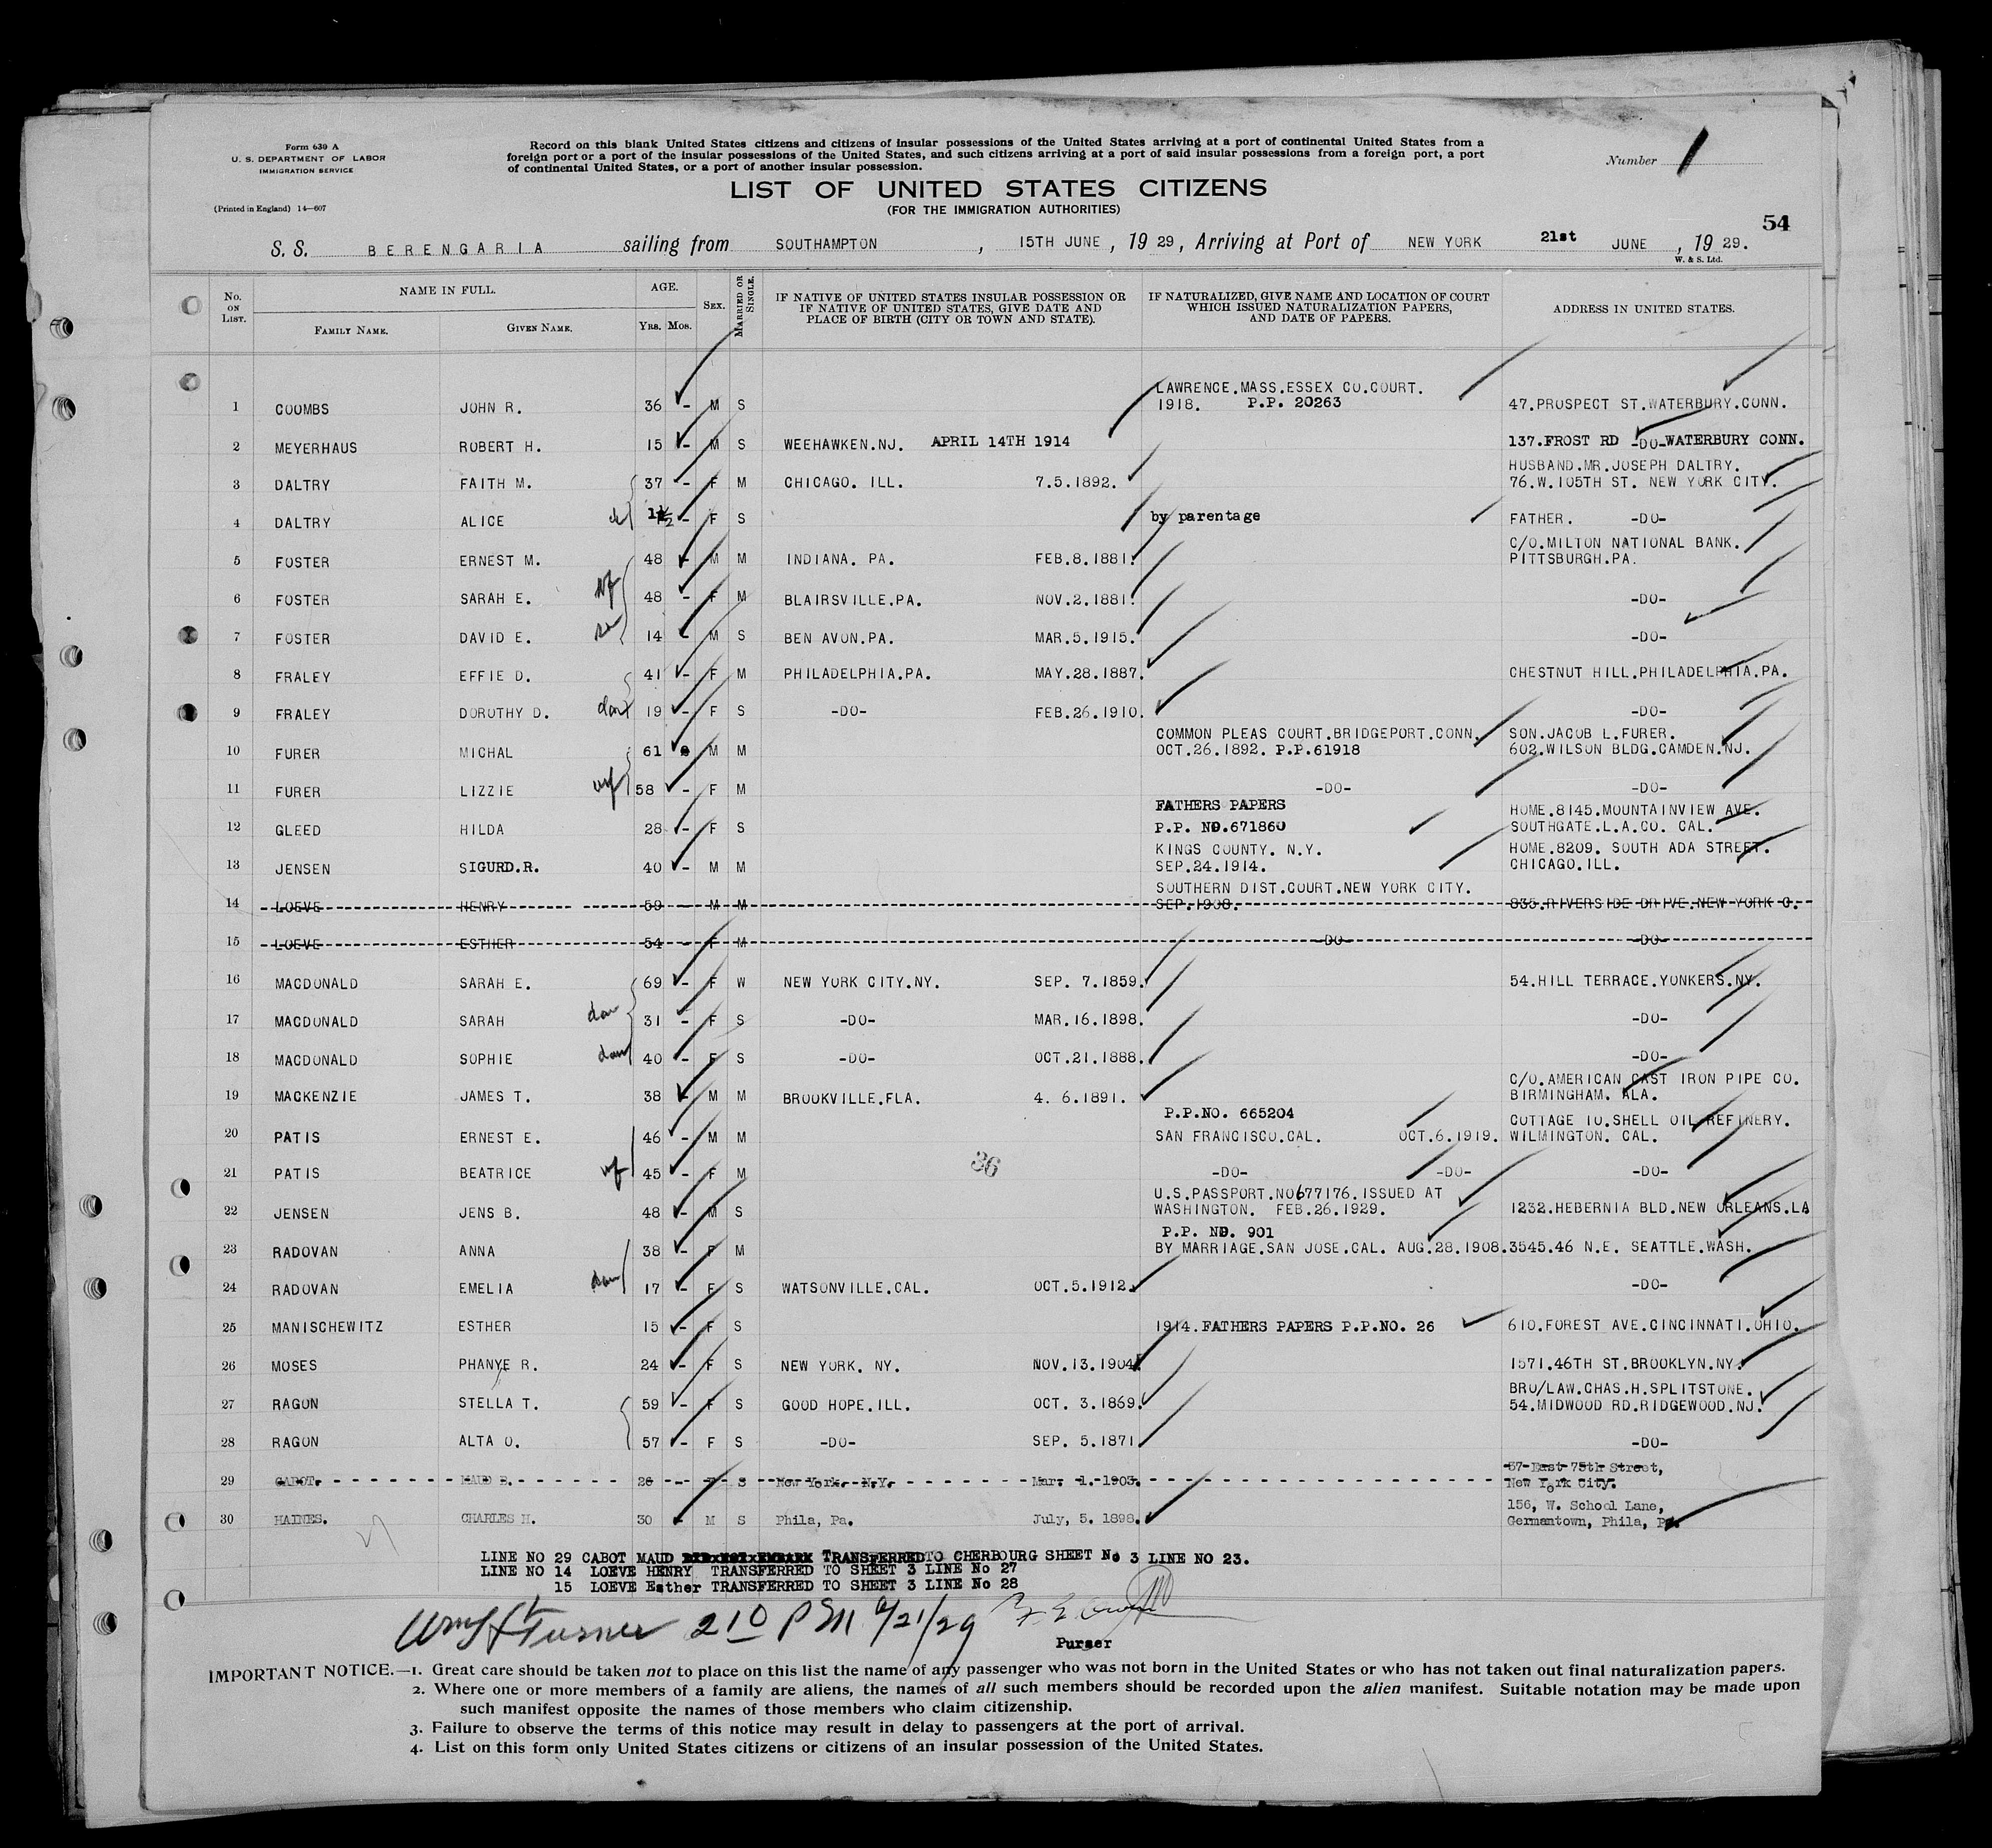 Form 630 A
U. S. DEPARTMENT OF LABOR
IMMIGRATION SERVICE
(Printed in England) 14—607
Record on this blank United States citizens and citizens of insular possessions of the United States arriving at a port of continental United States from a
foreign port or a port of the insular possessions of the United States, and such citizens arriving at a port of said insular possessions from a foreign port, a port
of continental United States, or a port of another insular possession.
Number 1
LIST OF UNITED STATES CITIZENS
(FOR THE IMMIGRATION AUTHORITIES)
54
S. S. BERENGARIA sailing from SOUTHAMPTON, 15TH JUNE, 19 29, Arriving at Port of NEW YORK 21st JUNE, 19 29.
W. & S. Ltd.
No. ON LIST. NAME IN FULL. FAMILY NAME. GIVEN NAME. AGE. Yrs. Mos. SEX. MARRIED OR SINGLE. IF NATIVE OF UNITED STATES INSULAR POSSESSION OR IF NATIVE OF UNITED STATES, GIVE DATE AND PLACE OF BIRTH (CITY OR TOWN AND STATE). IF NATURALIZED, GIVE NAME AND LOCATION OF COURT WHICH ISSUED NATURALIZATION PAPERS, AND DATE OF PAPERS. ADDRESS IN UNITED STATES.
LAWRENCE.MASS.ESSEX CO.COURT.
1 COOMBS JOHN R. 36 - M S 1918. P.P. 20263 47.PROSPECT ST.WATERBURY.CONN.
2 MEYERHAUS ROBERT H. 15 - M S WEEHAWKEN.NJ. APRIL 14TH 1914 137.FROST RD -DO- WATERBURY CONN.
HUSBAND.MR.JOSEPH DALTRY.
3 DALTRY FAITH M. 37 - F M CHICAGO. ILL. 7.5.1892. 76.W.105TH ST. NEW YORK CITY.
4 DALTRY ALICE - F S by parentage FATHER. -DO-
C/O.MILTON NATIONAL BANK.
5 FOSTER ERNEST M. 48 - M M INDIANA. PA. FEB.8.1881. PITTSBURGH.PA.
6 FOSTER SARAH E. wf 48 - F M BLAIRSVILLE.PA. NOV.2.1881. -DO-
7 FOSTER DAVID E. 14 - M S BEN AVON.PA. MAR.5.1915. -DO-
8 FRALEY EFFIE D. 41 - F M PHILADELPHIA.PA. MAY.28.1887. CHESTNUT HILL.PHILADELPHIA.PA.
9 FRALEY DOROTHY D. dau 19 - F S -DO- FEB.26.1910. -DO-
COMMON PLEAS COURT.BRIDGEPORT.CONN. SON.JACOB L.FURER.
10 FURER MICHAL 61 M M OCT.26.1892. P.P.61918 602.WILSON BLDG.CAMDEN.NJ.
11 FURER LIZZIE wf 58 - F M -DO- -DO-
FATHERS PAPERS HOME.8145.MOUNTAINVIEW AVE.
12 GLEED HILDA 28 - F S P.P. NO.671860 SOUTHGATE.L.A.CO. CAL.
KINGS COUNTY. N.Y. HOME.8209. SOUTH ADA STREET.
13 JENSEN SIGURD.R. 40 - M M SEP.24.1914. CHICAGO.ILL.
SOUTHERN DIST.COURT.NEW YORK CITY.
14 LOEVE HENRY 59 - M M SEP.1908. 835.RIVERSIDE DRIVE.NEW YORK C.
15 LOEVE ESTHER 54 - F M -DO- -DO-
16 MACDONALD SARAH E. 69 - F W NEW YORK CITY.NY. SEP. 7.1859. 54.HILL TERRACE.YONKERS.NY.
17 MACDONALD SARAH dau 31 - F S -DO- MAR.16.1898. -DO-
18 MACDONALD SOPHIE dau 40 - F S -DO- OCT.21.1888. -DO-
C/O.AMERICAN CAST IRON PIPE CO.
19 MACKENZIE JAMES T. 38 - M M BROOKVILLE.FLA. 4. 6.1891. BIRMINGHAM. ALA.
P.P.NO. 665204 COTTAGE 10.SHELL OIL REFINERY.
20 PATIS ERNEST E. 46 - M M SAN FRANCISCO.CAL. OCT.6.1919. WILMINGTON. CAL.
21 PATIS BEATRICE wf 45 - F M 36 -DO- -DO- -DO-
U.S.PASSPORT.NO677176.ISSUED AT
22 JENSEN JENS B. 48 - M S WASHINGTON. FEB.26.1929. 1232.HEBERNIA BLD.NEW ORLEANS.LA
P.P. NO. 901
23 RADOVAN ANNA 38 - F M BY MARRIAGE.SAN JOSE.CAL. AUG.28.1908. 3545.46 N.E. SEATTLE.WASH.
24 RADOVAN EMELIA dau 17 - F S WATSONVILLE.CAL. OCT.5.1912. -DO-
25 MANISCHEWITZ ESTHER 15 - F S 1914.FATHERS PAPERS P.P.NO. 26 610.FOREST AVE.CINCINNATI.OHIO.
26 MOSES PHANYE R. 24 - F S NEW YORK. NY. NOV.13.1904. 1571.46TH ST.BROOKLYN.NY.
BRO/LAW.CHAS.H.SPLITSTONE.
27 RAGON STELLA T. 59 - F S GOOD HOPE.ILL. OCT. 3.1869. 54.MIDWOOD RD.RIDGEWOOD.NJ.
28 RAGON ALTA O. 57 - F S -DO- SEP. 5.1871. -DO-
57 East 75th Street,
29 CABOT. MAUD B. 26 - F S New York. N.Y. Mar. 1. 1903. New York City.
156, W. School Lane,
30 HAINES. CHARLES H. 30 - M S Phila, Pa. July, 5. 1898. Germantown, Phila, Pa.
LINE NO 29 CABOT MAUD TRANSFERRED TO CHERBOURG SHEET No 3 LINE NO 23.
LINE NO 14 LOEVE HENRY TRANSFERRED TO SHEET 3 LINE No 27
15 LOEVE Esther TRANSFERRED TO SHEET 3 LINE No 28
Turner 210 PM 6/21/29
Purser
IMPORTANT NOTICE.—1. Great care should be taken not to place on this list the name of any passenger who was not born in the United States or who has not taken out final naturalization papers.
2. Where one or more members of a family are aliens, the names of all such members should be recorded upon the alien manifest. Suitable notation may be made upon
such manifest opposite the names of those members who claim citizenship.
3. Failure to observe the terms of this notice may result in delay to passengers at the port of arrival.
4. List on this form only United States citizens or citizens of an insular possession of the United States.